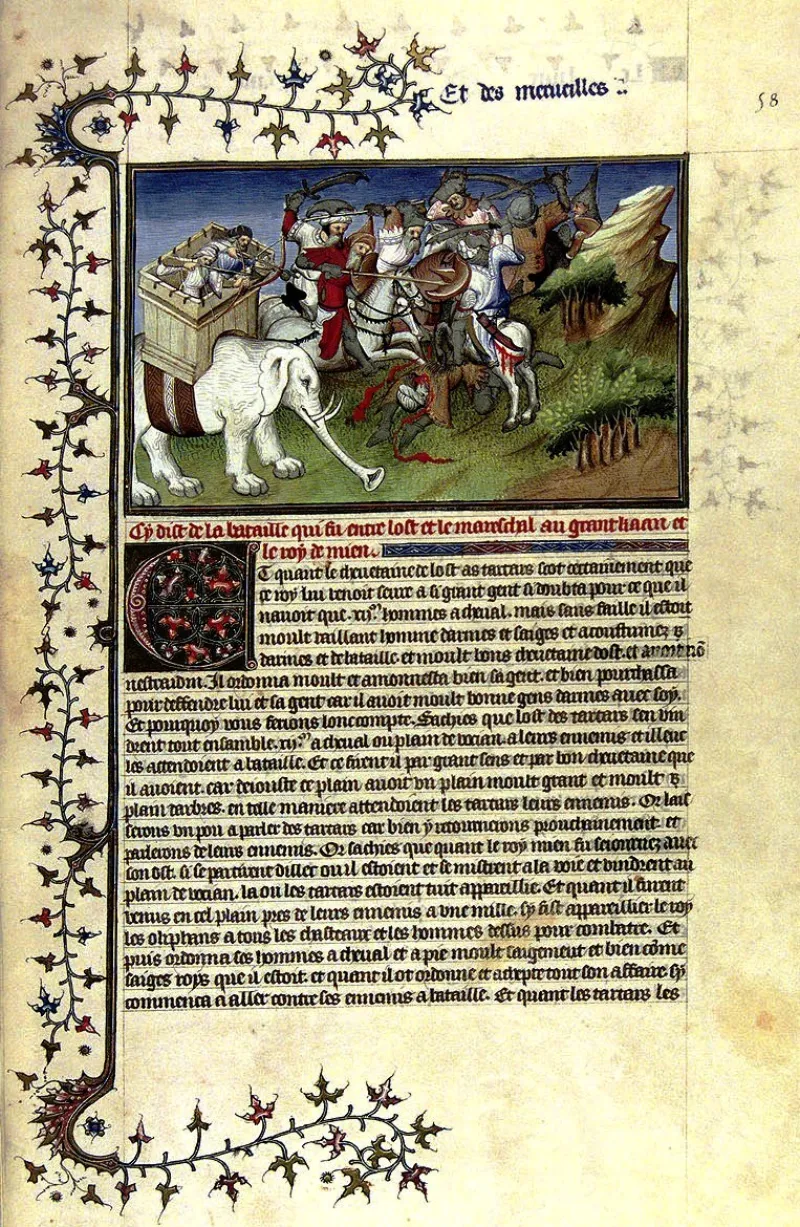 Et des merueilles
58
Cy dist de la bataille qui fu entre lost et le mareschal au grant kaan et
le roy de mien.
Et quant le cheuetaine de lost as tartars scot certainement que
ce roy lui venoit seure a si grant gent si doubta pour ce que il
nauoit que .xii.m hommes a cheual. mais sans faille il estoit
moult vaillant homme darmes et saiges et acoustumez
darmes et de bataille. et moult bons cheuetaine dost. et
Il ordonna moult et amonnesta bien sa gent. et bien pourchassa
pour deffendre lui et sa gent car il auoit moult bonne gens darmes auec soy.
Et pourquoy vous feroins lonc compte. Sachies que lost des tartars sen vin
drent tout ensamble .xii.m a cheual ou plain de vocian. a leurs ennemis et illeuc
les attendoient a bataille. Et ce firent il par grant sens et par bon cheuetaine que
il auoient. car deiouste ce plain auoit vn plain moult grant et moult
plain darbres. en telle maniere attendoient les tartars leurs ennemis. Or lais
serons vn pou a parler des tartars car bien y retournerons prouchainement. et
parlerons de leurs ennemis. Or sachies que quant le roy mien fu seiournez auec
son ost. si se partirent dillec ou il estoient et se mistrent a la voie et vindrent au
plain de vocian. la ou les tartars estoient tuit appareillie. Et quant il furent
venus en cel plain pres de leurs ennemis a vne mille. sy fist appareillier le roy
les oliphans a tons les chasteaux et les hommes dessus pour combatre. Et
puis ordonna ses hommes a cheual et a pie moult saigement et bien come
saiges roys que il estoit. et quant il ot ordonne et tout son affaire. sy
commenca a aller contre ses ennemis a bataille. Et quant les tartars les